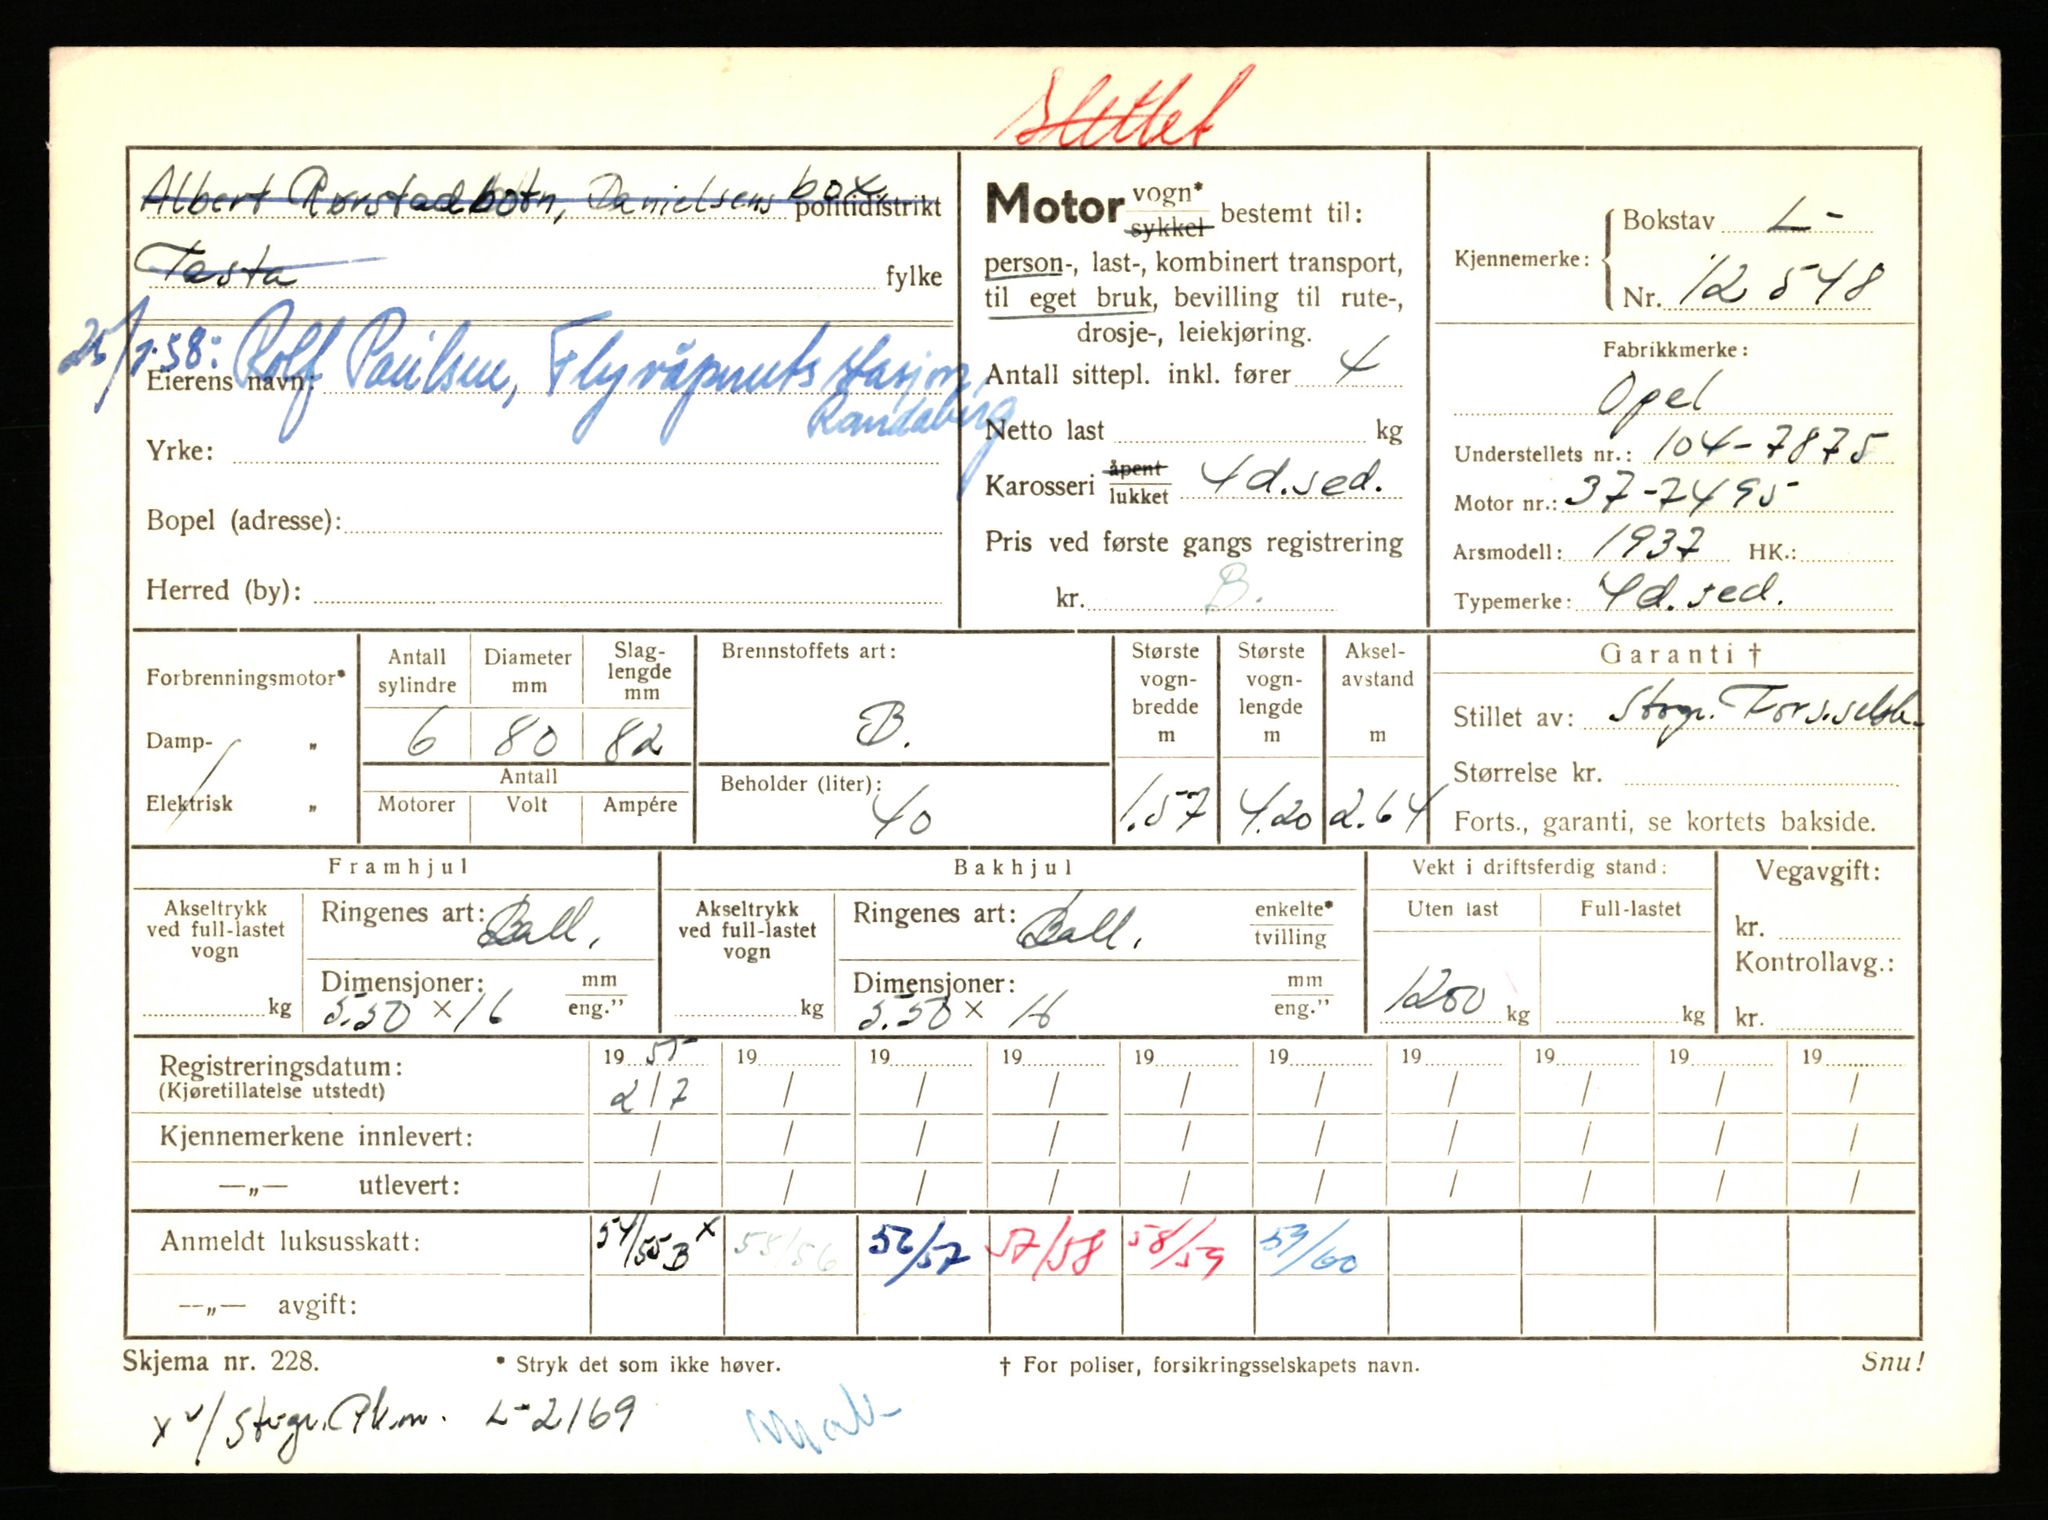 Slettet
Albert Rørstadbotn, Danielsens box, politidistrikt
Tasta fylke
25/7.58: Rolf Paulsen, Flyvåpnets stasjon,
Randaberg
Eierens navn:
Yrke:
Bopel (adresse):
Herred (by):
Motor vogn* sykkel bestemt til:
person-, last-, kombinert transport,
til eget bruk, bevilling til rute-,
drosje-, leiekjøring.
Antall sittepl. inkl. fører 4
Netto last kg
Karosseri åpent lukket 4d.sed.
Pris ved første gangs registrering
kr. B.
Kjennemerke: Bokstav L-
Nr. 12548
Fabrikkmerke:
Opel
Understellets nr.: 104-7875
Motor nr.: 37-7495
Arsmodell: 1937 HK.:
Typemerke: 4d.sed.
Forbrenningsmotor*
Damp- „
Elektrisk „
Antall sylindre Diameter mm Slag-lengde mm
6 80 82
Antall
Motorer Volt Ampére
Brennstoffets art:
B.
Beholder (liter):
40
Største vogn-bredde m
1.57
Største vogn-lengde m
4.20
Aksel-avstand m
2.64
Garanti †
Stillet av: Storgr. Fors.selsk.
Størrelse kr.
Forts., garanti, se kortets bakside.
Framhjul
Akseltrykk ved full-lastet vogn
kg
Ringenes art: Ball.
Dimensjoner: mm eng.”
5.50 x 16
Bakhjul
Akseltrykk ved full-lastet vogn
kg
Ringenes art: Ball. enkelte* tvilling
Dimensjoner: mm eng.”
5.50 x 16
Vekt i driftsferdig stand:
Uten last Full-lastet
1200 kg kg
Vegavgift:
kr.
Kontrollavg.:
kr.
Registreringsdatum: 19 55 19 19 19 19 19 19 19 19 19
(Kjøretillatelse utstedt) 2/7 / / / / / / / / /
Kjennemerkene innlevert: / / / / / / / / / /
—„— utlevert: / / / / / / / / / /
Anmeldt luksusskatt: 54/55B x 55/56 56/57 57/58 58/59 59/60
—„— avgift:
Skjema nr. 228. * Stryk det som ikke høver. † For poliser, forsikringsselskapets navn. Snu!
L-2169